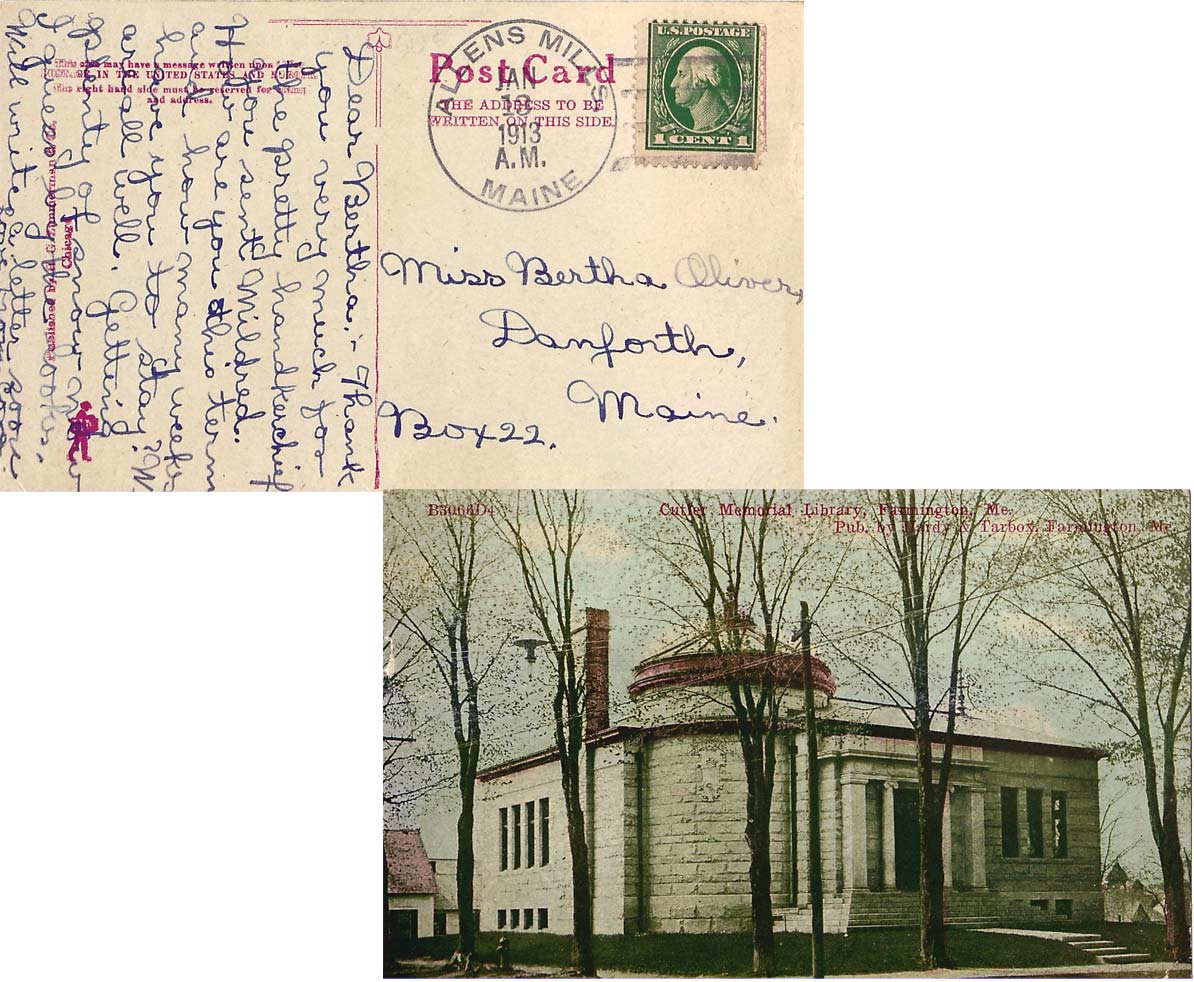 This side may have a message written upon
IN THE UNITED STATES AND
right hand side must be reserved for
and address.
Published by H. G. Zimmerman & Co.
Chicago
Dear Bertha:- Thank
you very much for
the pretty handkerchief
you sent Mildred.
How are you this term
and how many weeks
have you to stay? We
are all well. Getting
plenty of snow now
I guess by the looks.
Will write a letter soon.
Post Card
THE ADDRESS TO BE
WRITTEN ON THIS SIDE.
ALLENS MILLS
JAN
13
1913
A.M.
MAINE
U.S. POSTAGE
1 CENT 1
Miss Bertha Oliver,
Danforth,
Maine.
Box 22.
B3066D4
Cutler Memorial Library, Farmington, Me.
Pub. by Hardy & Tarbox, Farmington, Me.